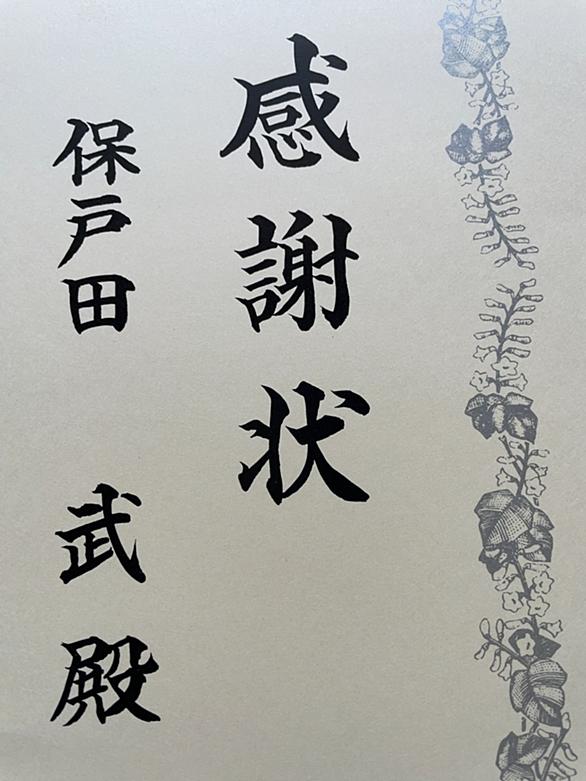 感謝状
保戸田 武殿